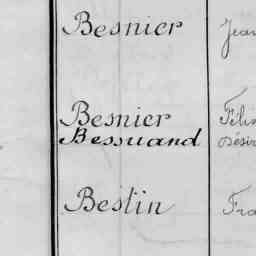 Besnier Jean
Besnier Félix
Bessuand Désir
Bestin Fra